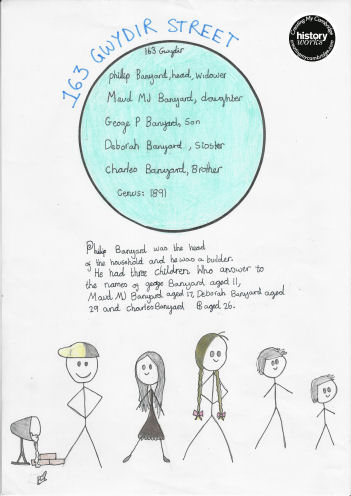 163 GWYDIR STREET
Creating My Cambridge
history
works
creatingmycambridge.com
163 Gwydir
Philip Banyard, head, widower
Maud MJ Banyard, daughter
Geoge P Banyard, Son
Deborah Banyard, Sisster
Charles Banyard, Brother
Cenus: 1891
Philip Banyard was the head
of the household and he was a builder.
He had three children who answer to
the names of george Banyard aged 11,
Maud MJ Banyard aged 17, Deborah Banyard aged
29 and Charles Banyard aged 26.